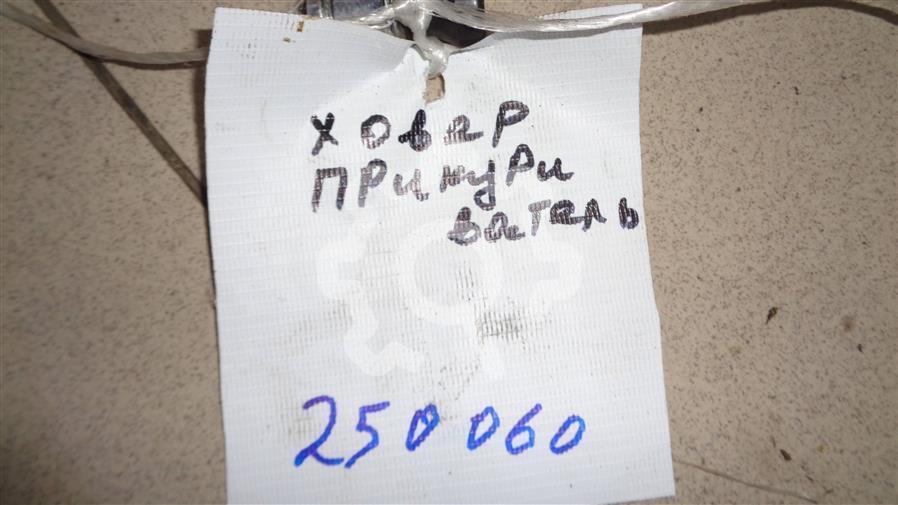 ховер
прикури
ватель
250060